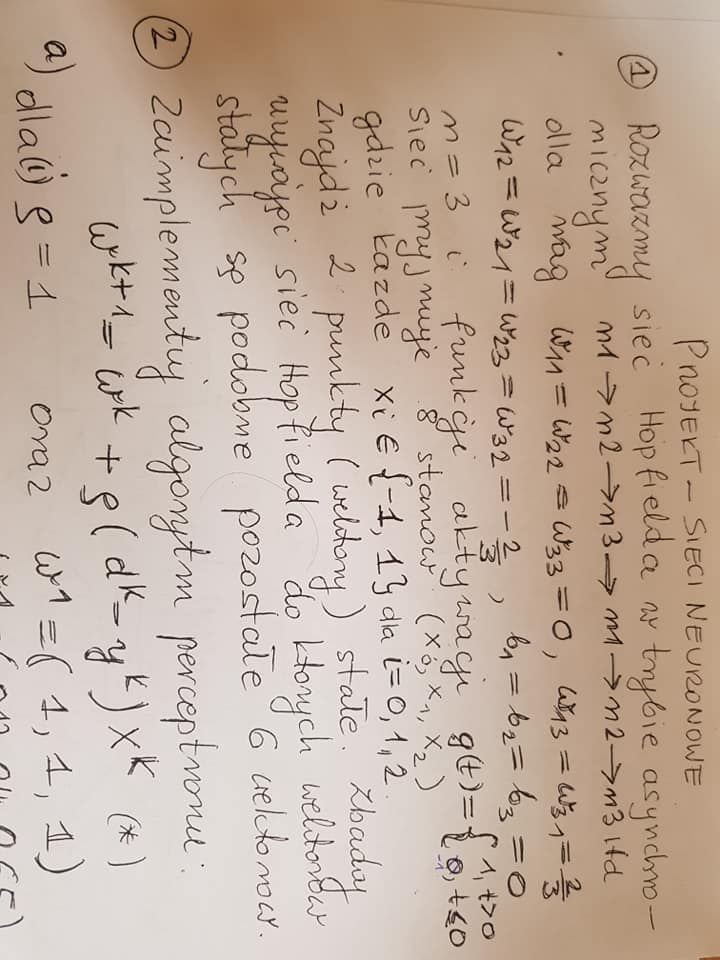 PROJEKT – SIECI NEURONOWE
① Rozważmy sieć Hopfielda w trybie asynchro–
nicznym n1 → n2 → n3 → n1 → n2 → n3 itd
dla wag w11 = w22 = w33 = 0, w13 = w31 = 2/3
w12 = w21 = w23 = w32 = -2/3, b1 = b2 = b3 = 0
n = 3 i funkcji aktywacji g(t) = { 1, t>0
0, t≤0
-1
Sieć przyjmuje 8 stanów (x0, x1, x2)
gdzie każde xi ∈ {-1, 1} dla i = 0, 1, 2.
Znajdź 2 punkty (wektory) stałe. Zbadaj
używając sieć Hopfielda do których wektorów
stałych są podobne pozostałe 6 wektorów.
② Zaimplementuj algorytm perceptronu:
w^{k+1} = w^k + ρ(d^k – y^k) x^k (*)
a) dla (i) ρ = 1 oraz w^1 = (1, 1, 1)